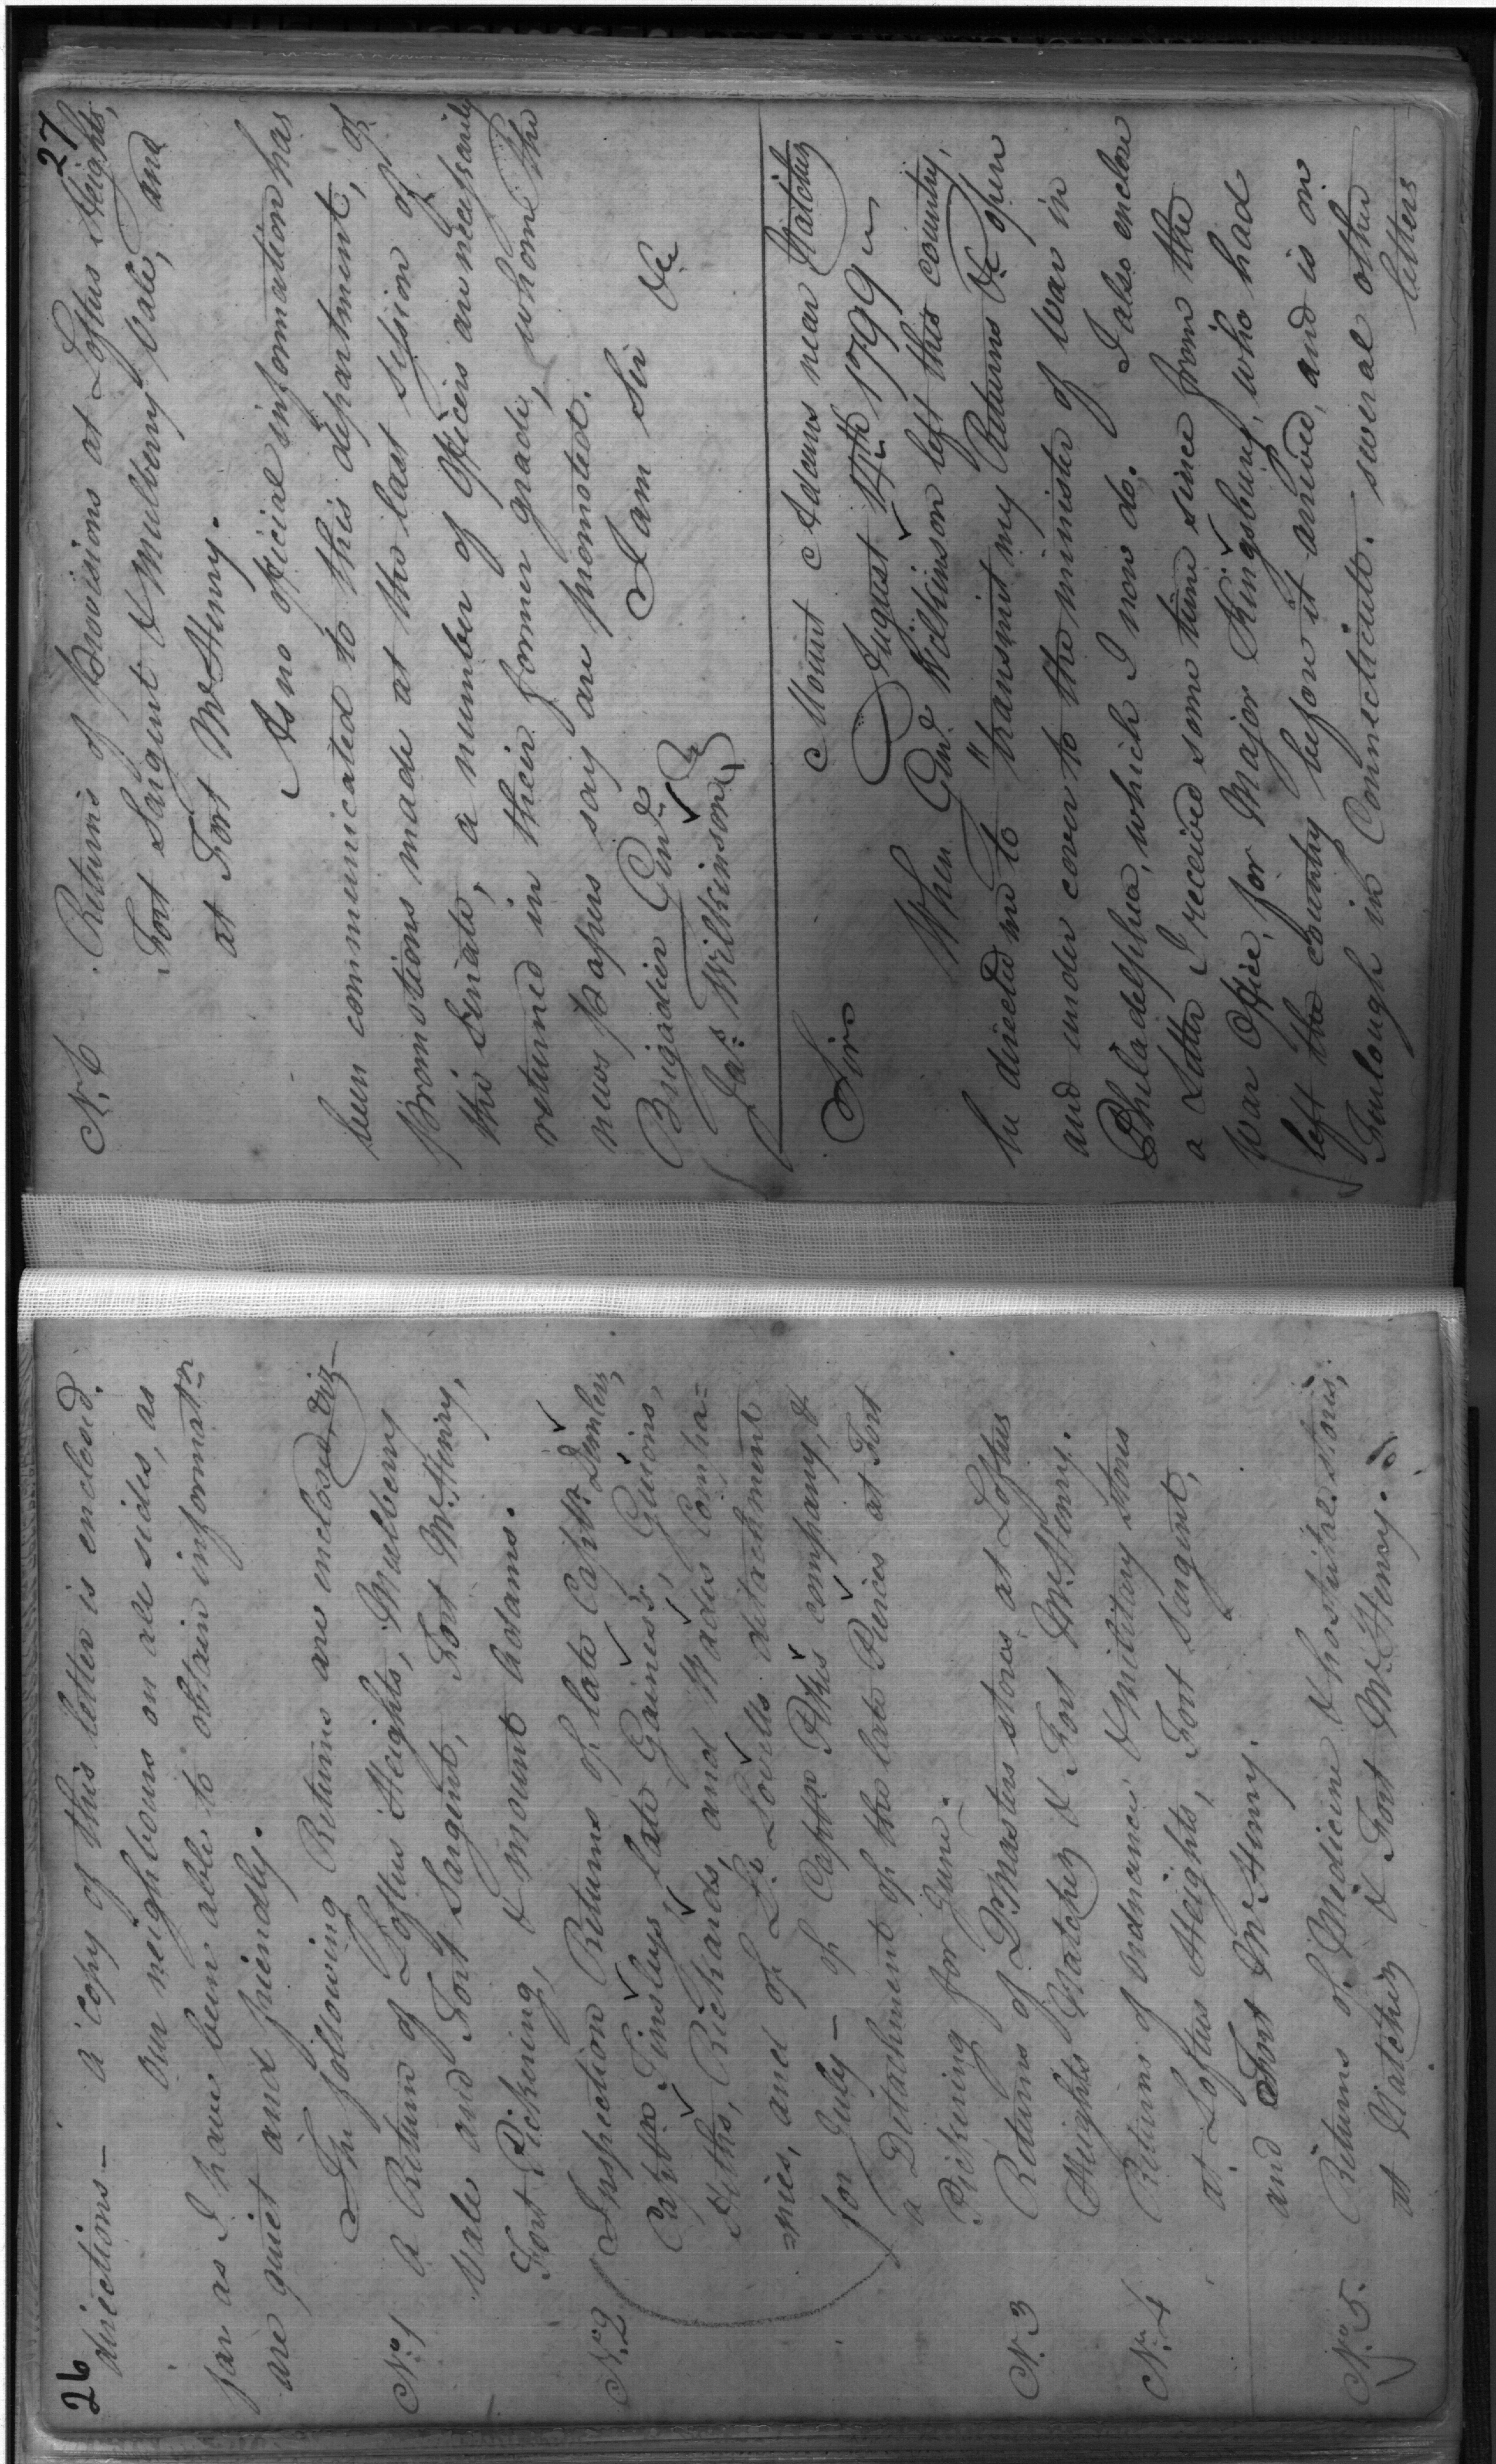 26
directions — a copy of this letter is enclosed.
Our neighbours on all sides, as
far as I have been able to obtain informatn
are quiet and friendly.
The following Returns are enclosed, viz—
No. 1 A Return of Loftus Heights, Mulberry
Vale and Fort Sargent, Fort McHenry,
Fort Pickering, & mount Adams.
No. 2 Inspection Returns of late Captn. Demlers,
Captn. Tinsleys late Gaines's, Guions,
Heths, Richards, and Wades Compa=
=nies, and of Lt. Lovells detachment
for July — of Captn. Pikes company, &
a Detachment of the late Pierces at Fort
Pickering for June.
No. 3 Returns of Qr. Masters stores at Loftus
Heights Natchez & Fort McHenry.
No. 4 Returns of ordnance & military stores
at Loftus Heights, Fort Sargent,
and Fort McHenry.
No. 5. Returns of Medicine & hospital stores,
at Natchez & Fort McHenry.
27
No. 6 Returns of provisions at Loftus Heights,
Fort Sargent & Mulberry Vale, and
at Fort McHenry.
As no official information has
been communicated to this department, of
promotions made at the last session of
the Senate, a number of officers are necessarily
returned in their former grade, whome the
news papers say are promoted.
I am Sir &c
Brigadier Genl.
Jas. Wilkinson
Mount Adams near Natchez
August 14th 1799
Sir
When Genl. Wilkinson left this country,
he directed me to "transmit my Returns &c open
and under cover to the minister of war in
Philadelphia, which I now do. I also enclose
a Letter I received some time since from the
War Office, for Major Kingsbury, who had
left the country before it arrived, and is on
Furlough in Connecticutt. several other
letters